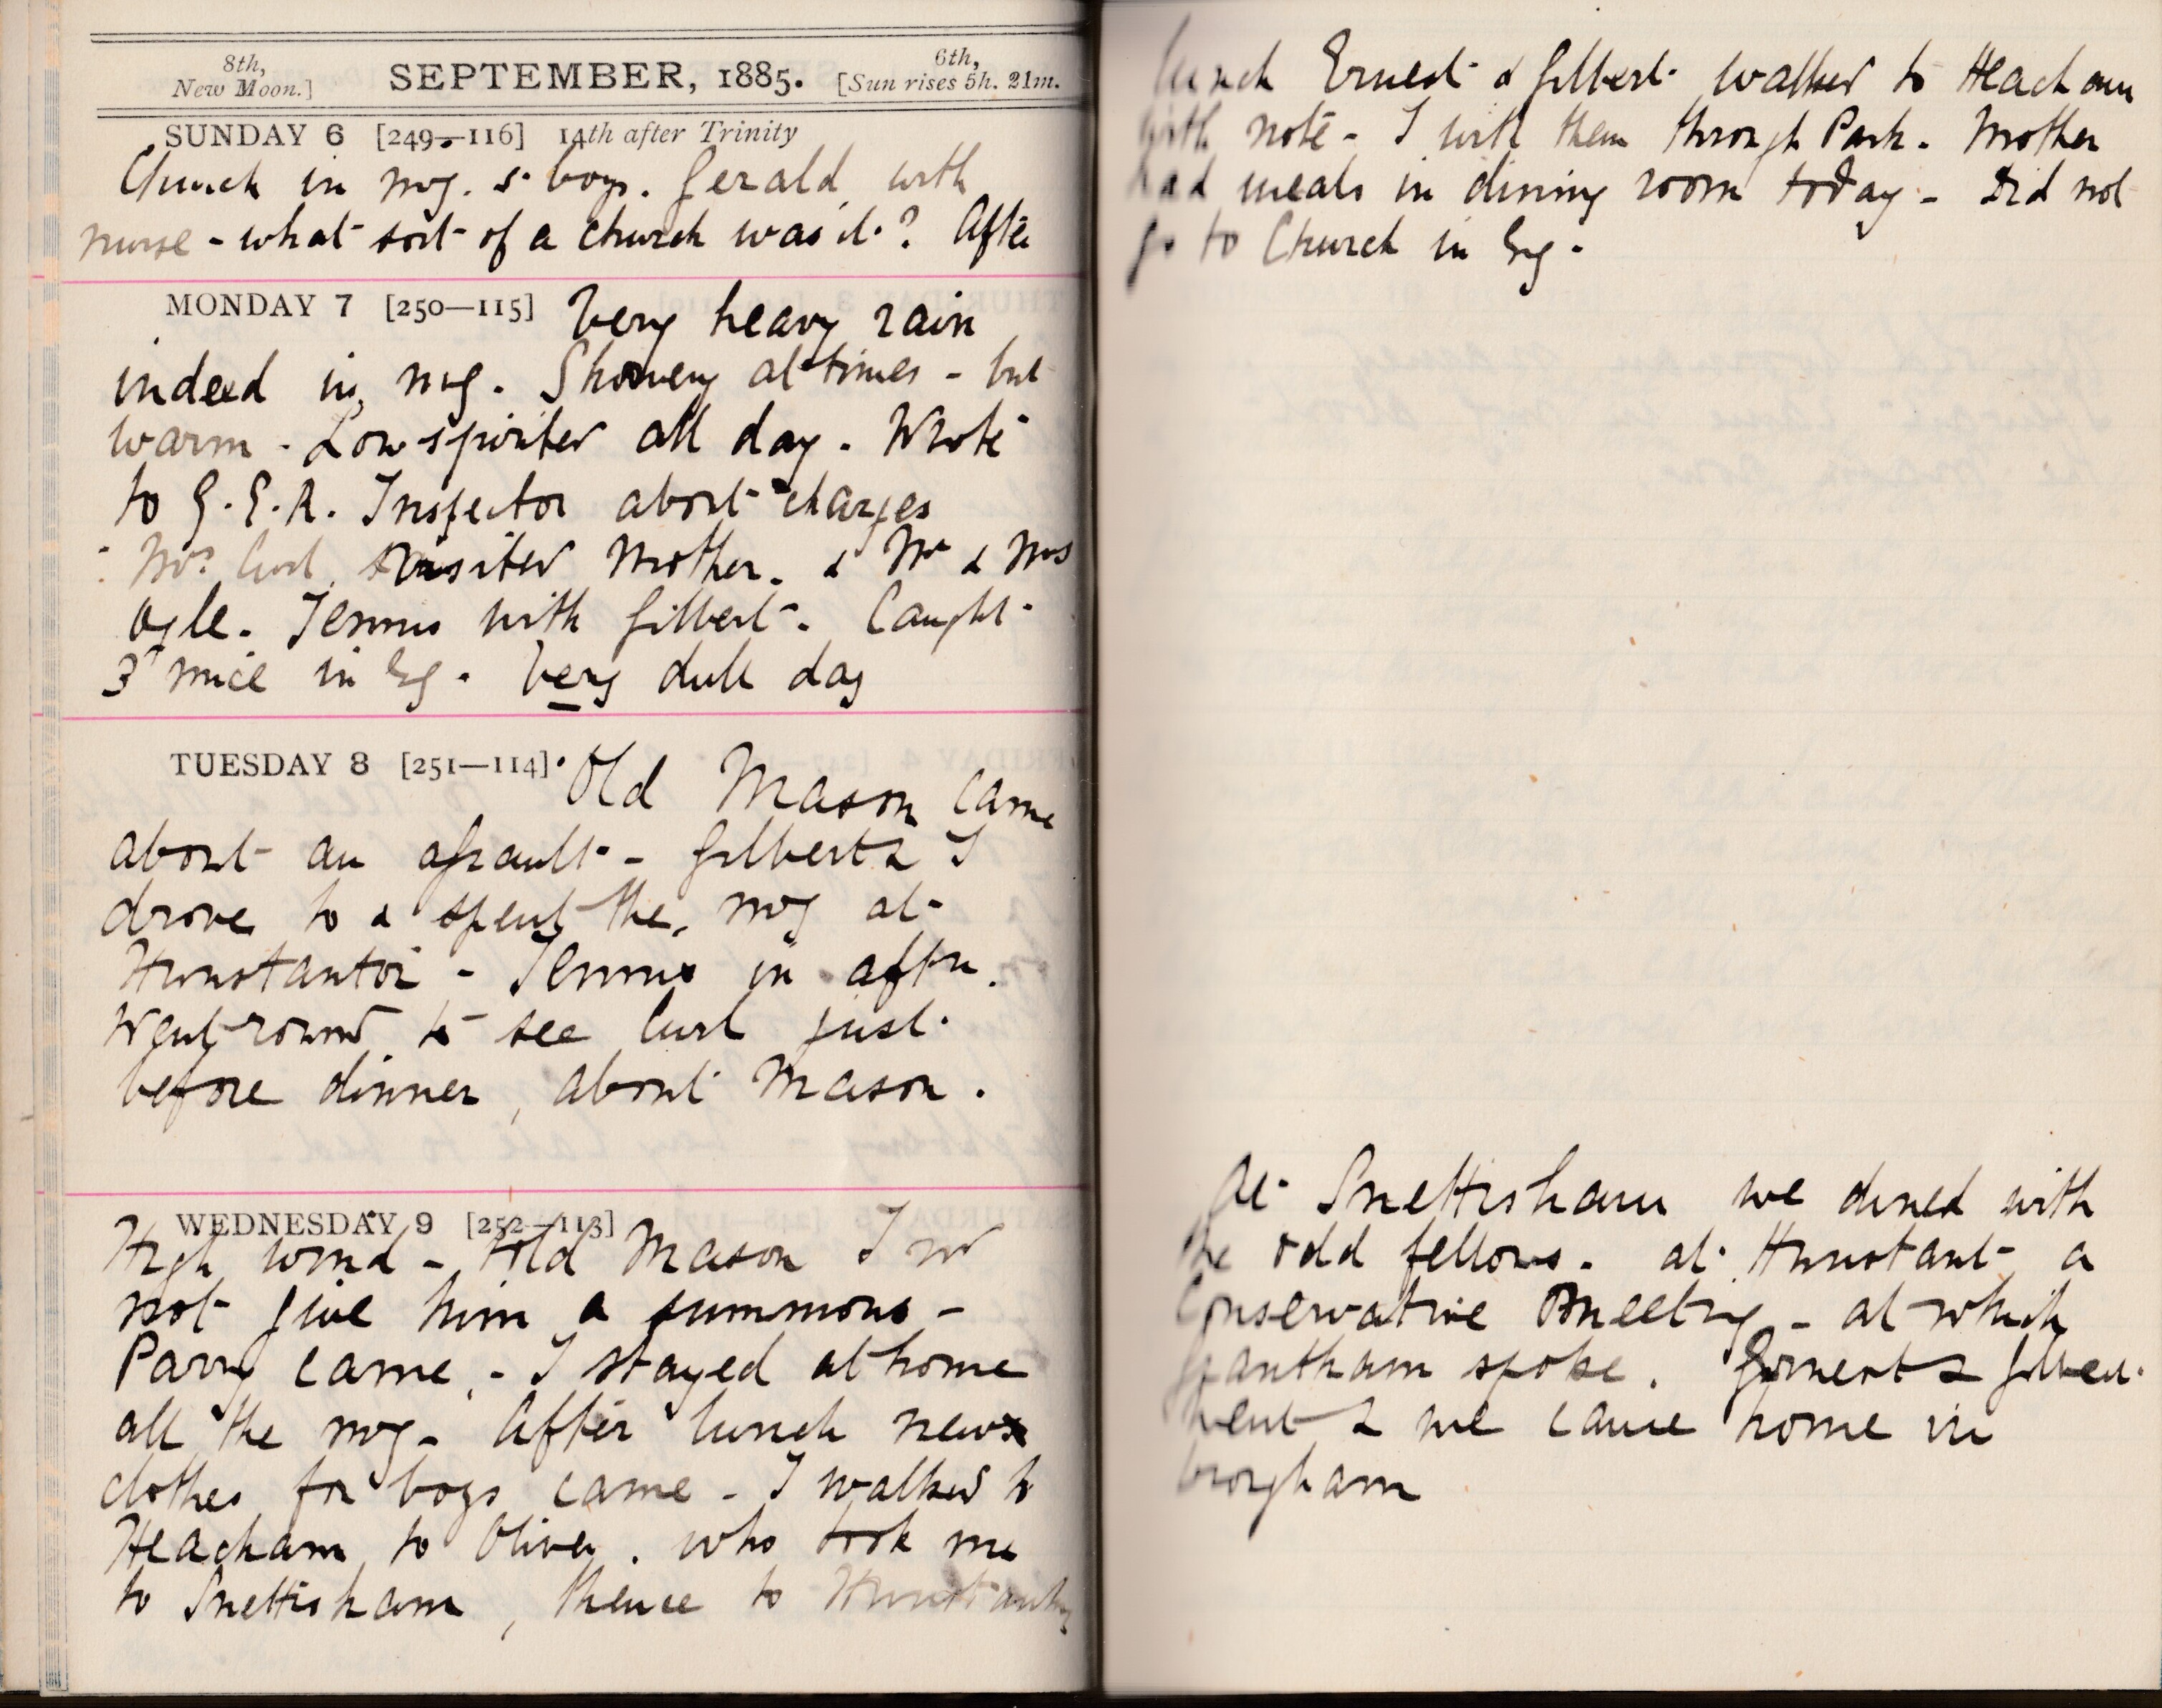 8th,
New Moon.]
SEPTEMBER, 1885.
6th,
[Sun rises 5h. 21m.
SUNDAY 6 [249—116] 14th after Trinity
Church in mg. 5 boys. Gerald with
nurse - what sort of a church was it? After
lunch Ernest & Gilbert walked to Heacham
with note - I with them through Park. Mother
had meals in dining room today - Did not
go to Church in Evg.
MONDAY 7 [250—115] Very heavy rain
indeed in mg. Showery at times - but
warm - Low spirited all day. Wrote
to G.E.R. Inspector about charges
Mrs Curl visited Mother. & Mr & Mrs
Ogle. Tennis with Gilbert. Caught
3 mice in Evg. Very dull day
TUESDAY 8 [251—114] Old Mason came
about an assault - Gilbert & I
drove to & spent the mg at
Hunstanton - Tennis in aftn.
Went round to see Curl just
before dinner, about Mason.
WEDNESDAY 9 [252—113]
High wind - told Mason I wd
not give him a summons -
Parry came - I stayed at home
all the mg - After lunch news
clothes for boys came - I walked to
Heacham to Oliver. who took me
to Snettisham, thence to Hunstanton
At Snettisham we dined with
the odd fellows. at Hunstant a
Conservative Meeting - at which
Grantham spoke. Ernest & Gilbert
went & we came home in
brougham